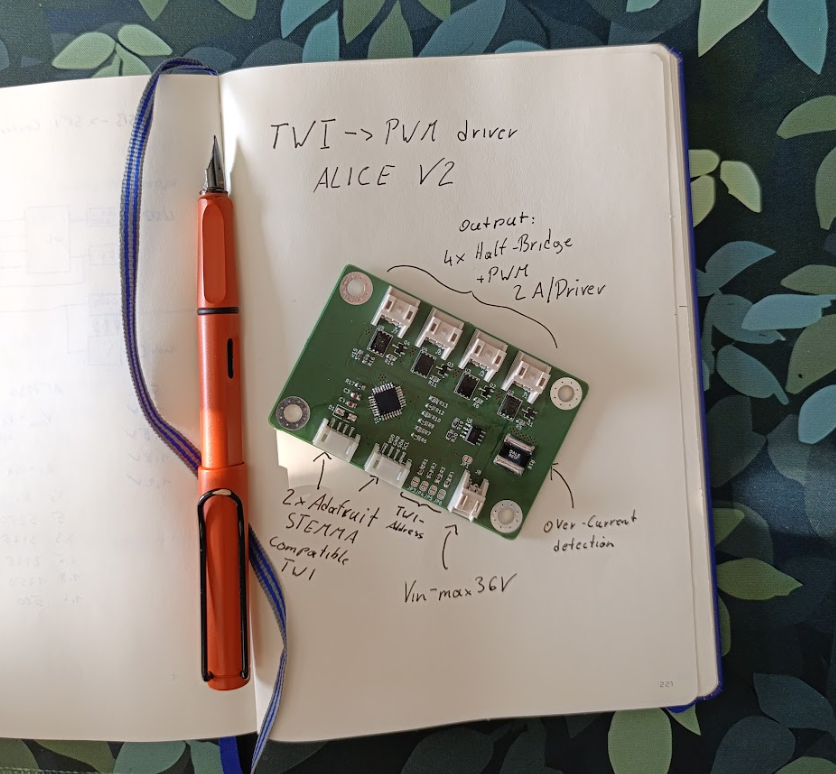 TWI -> PWM driver
ALICE V2
Output:
4x Half-Bridge
+PWM
2 A/Driver
2x Adafruit
STEMMA
compatible
TWI
TWI-
Address
Vin-max 36V
Over-Current
detection
221